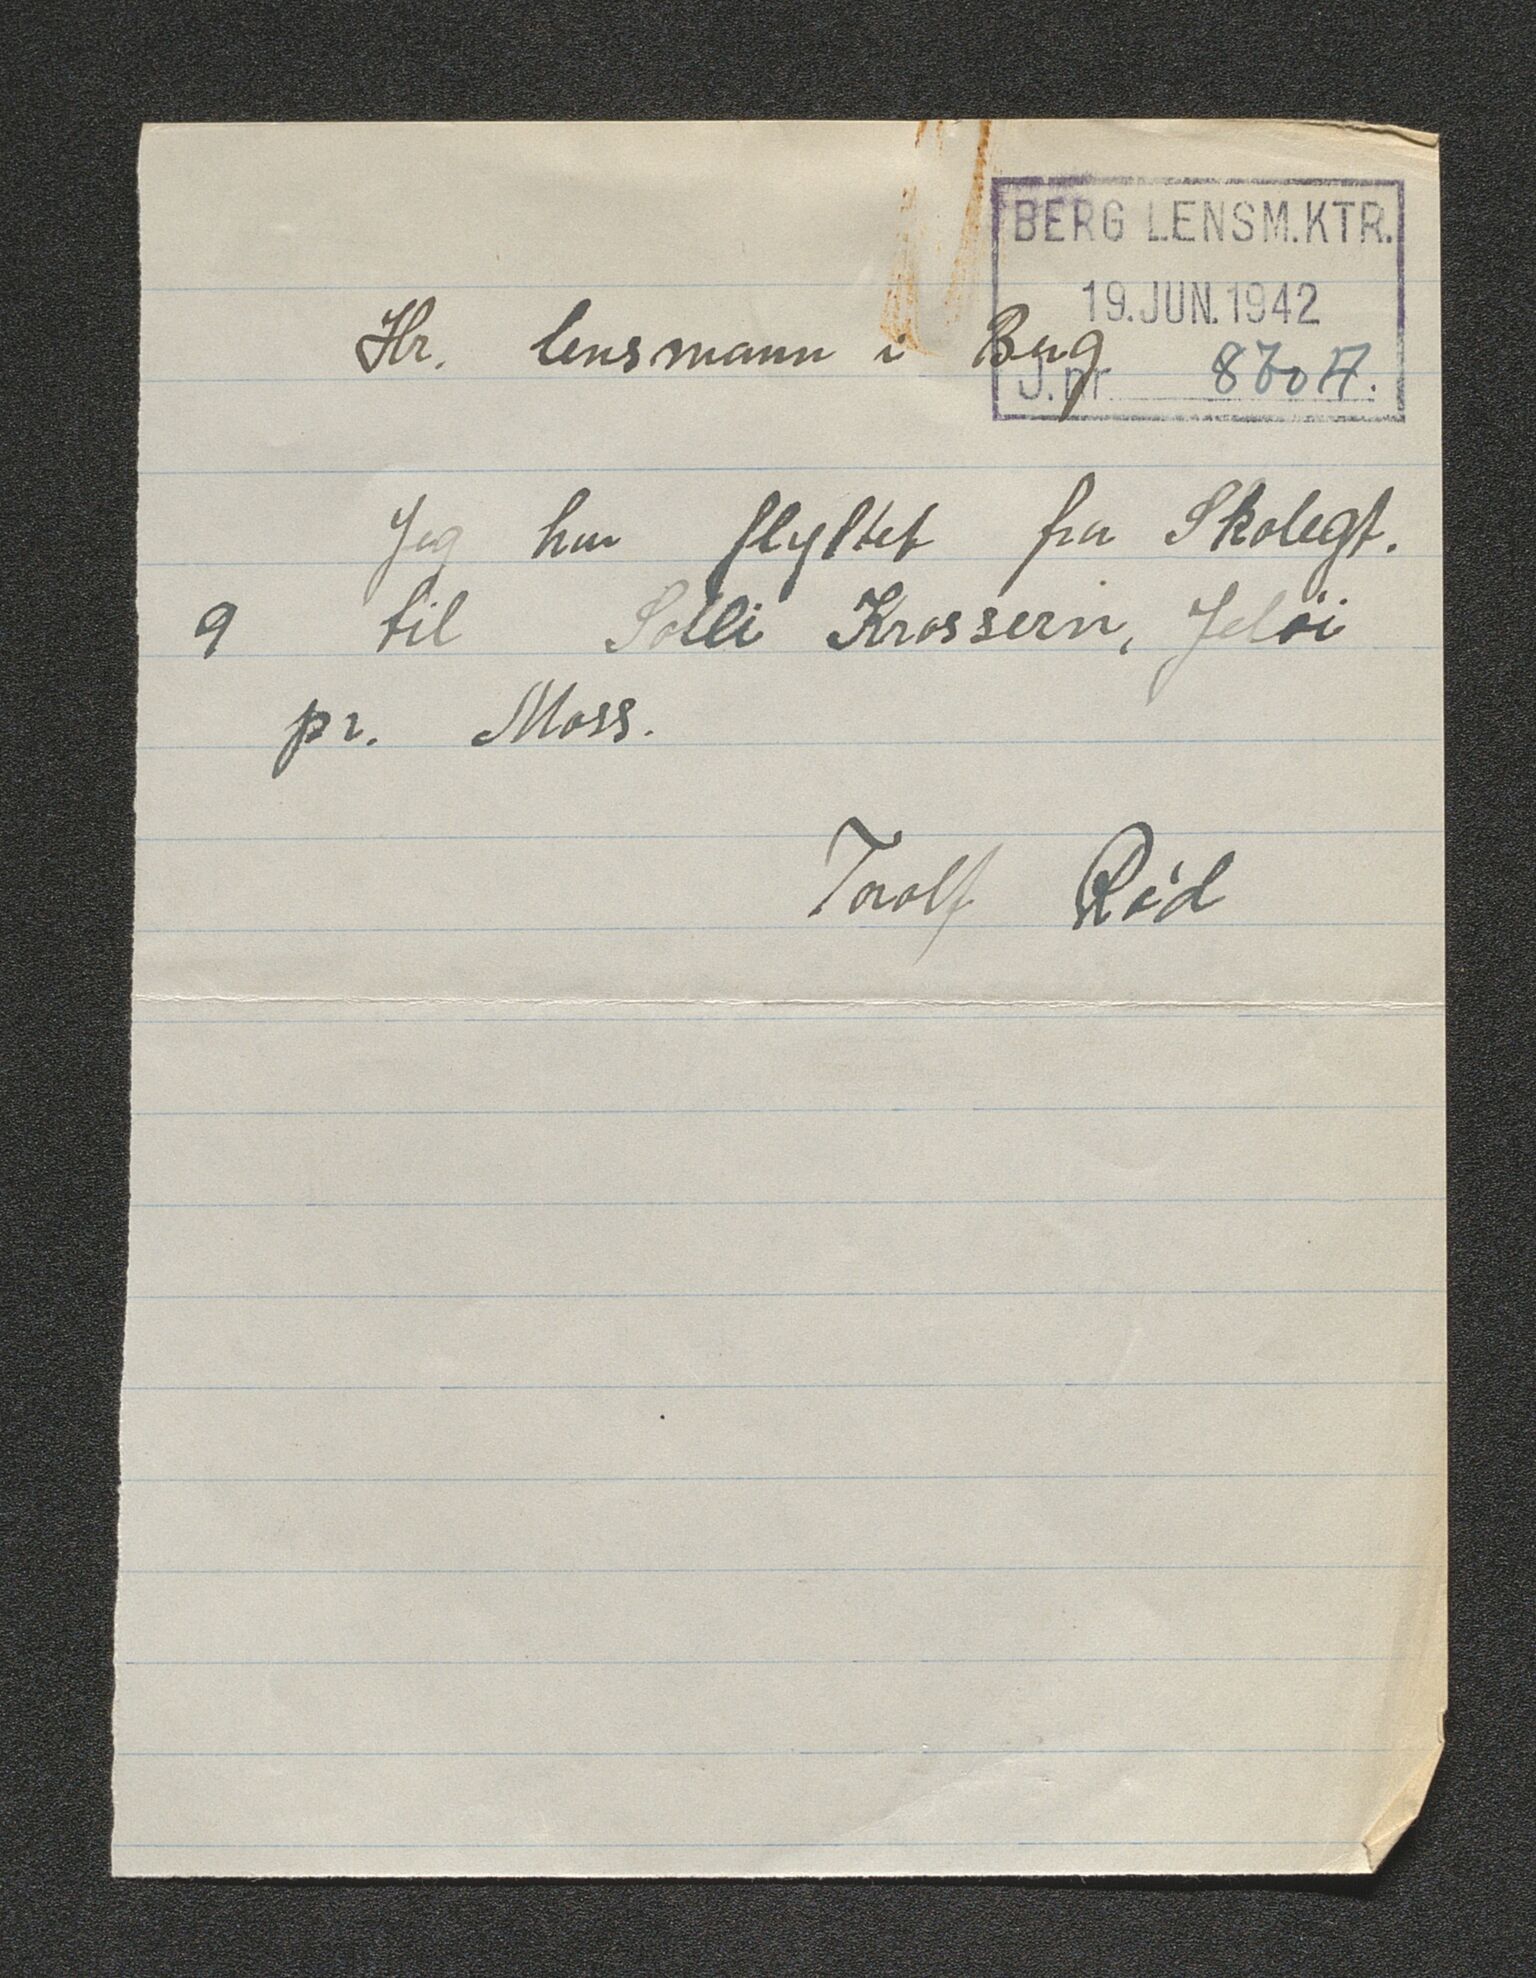 BERG LENSM.KTR.
19.JUN.1942
J.nr.
Hr. lensmann i Berg
Jeg har flyttet fra Skolegt.
9 til Solli Krossern, Jeløi
pr. Moss.
Torolf Rød